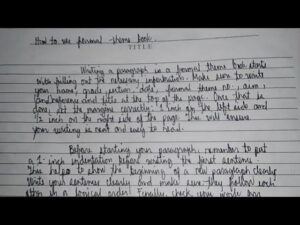 How to use formal theme book
TITLE
Writing a paragraph in a formal theme book starts
with filling out the necessary information. Make sure to write
your name, grade, section, date, formal theme no., aim,
and reference and title at the top of the page. Once that is
done, set the margins correctly - 1 inch on the left side and
1/2 inch on the right side of the page. This will ensure
your writing is neat and easy to read.
Before starting your paragraph, remember to put
a 1-inch indentation before writing the first sentence.
This helps to show the beginning of a new paragraph clearly.
Write your sentences clearly and make sure they follow each
other in a logical order. Finally, check your work